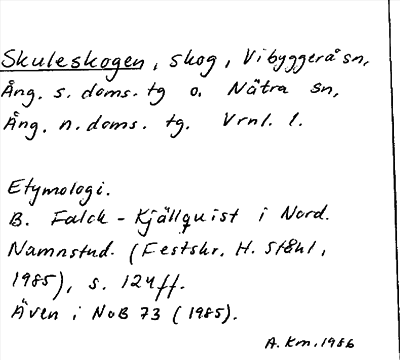 Skuleskogen, skog, Vibyggerå sn,
Ång. s. doms. tg o. Nätra sn,
Ång. n. doms. tg. Vrnl. l.
Etymologi.
B. Falck-Kjällquist i Nord.
Namnstud. (Festskr. H. Ståhl,
1985), s. 124ff.
Även i NoB 73 (1985).
A. Km. 1986